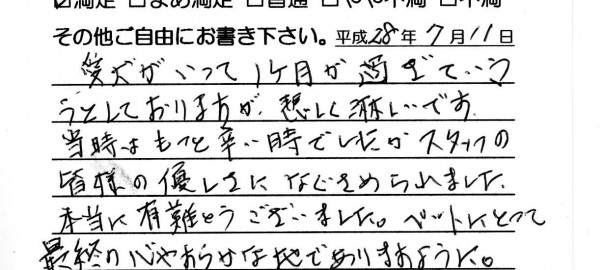 ☑満足 □まあ満足 □普通 □やや不満 □不満
その他ご自由にお書き下さい。平成28年7月11日
愛犬がいって1ケ月が過ぎてい
うとしておりますが、悲しく淋しいです
当時はもっと辛い時でしたがスタッフの
皆様の優しさになぐさめられました
本当に有難とうございました。ペットにとって
最終の心やおらかな地でありますように。